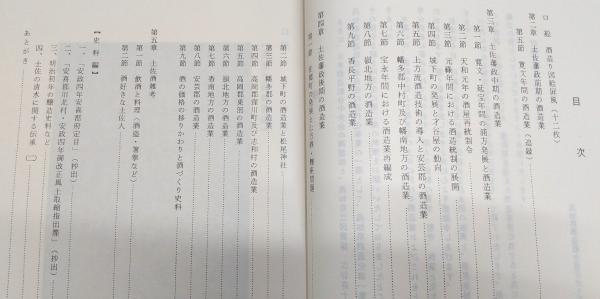 目次
口絵 酒造り図絵屏風(十二枚)
第二章 土佐藩政前期の酒造業
第五節 寛文年間の酒造業(追録)
第三章 土佐藩政中期の酒造業
第一節 寛文・延宝年間の浦方発展と酒造業
第二節 天和元年の酒屋再統制令
第三節 元禄年間における酒造統制の展開
第四節 城下町の発展と才谷屋の動向
第五節 上方流酒造技術の導入と安芸郡の酒造業
第六節 幡多郡中村町及び幡南地方の酒造業
第七節 宝永年間における酒造業再編成
第八節 嶺北地方の酒造業
第九節 香長平野の酒造業
第四章 土佐藩政後期の酒造業
第二節 城下町の酒造業と松尾神社
第三節 高岡郡の酒造業
第四節 高岡郡窪川町及び志和村の酒造業
第五節 高岡郡東部の酒造業
第六節 嶺北地方の酒造業
第七節 香南地方の酒造業
第八節 安芸郡の酒造業
第九節 酒の価格の移りかわりと酒づくり史料
第五章 土佐酒雑考
第一節 飲酒と料理(酒盗・皿鉢など)
第二節 酒好きな土佐人
【史料編】
一、「安政四年安喜郡府定目」(抄出)
二、「安喜郡川北村・安政四年御改正風土取縮指出牒」(抄出)
三、明治初年の醸造史料など
四、土佐の清水に関する伝承(二)
あとがき